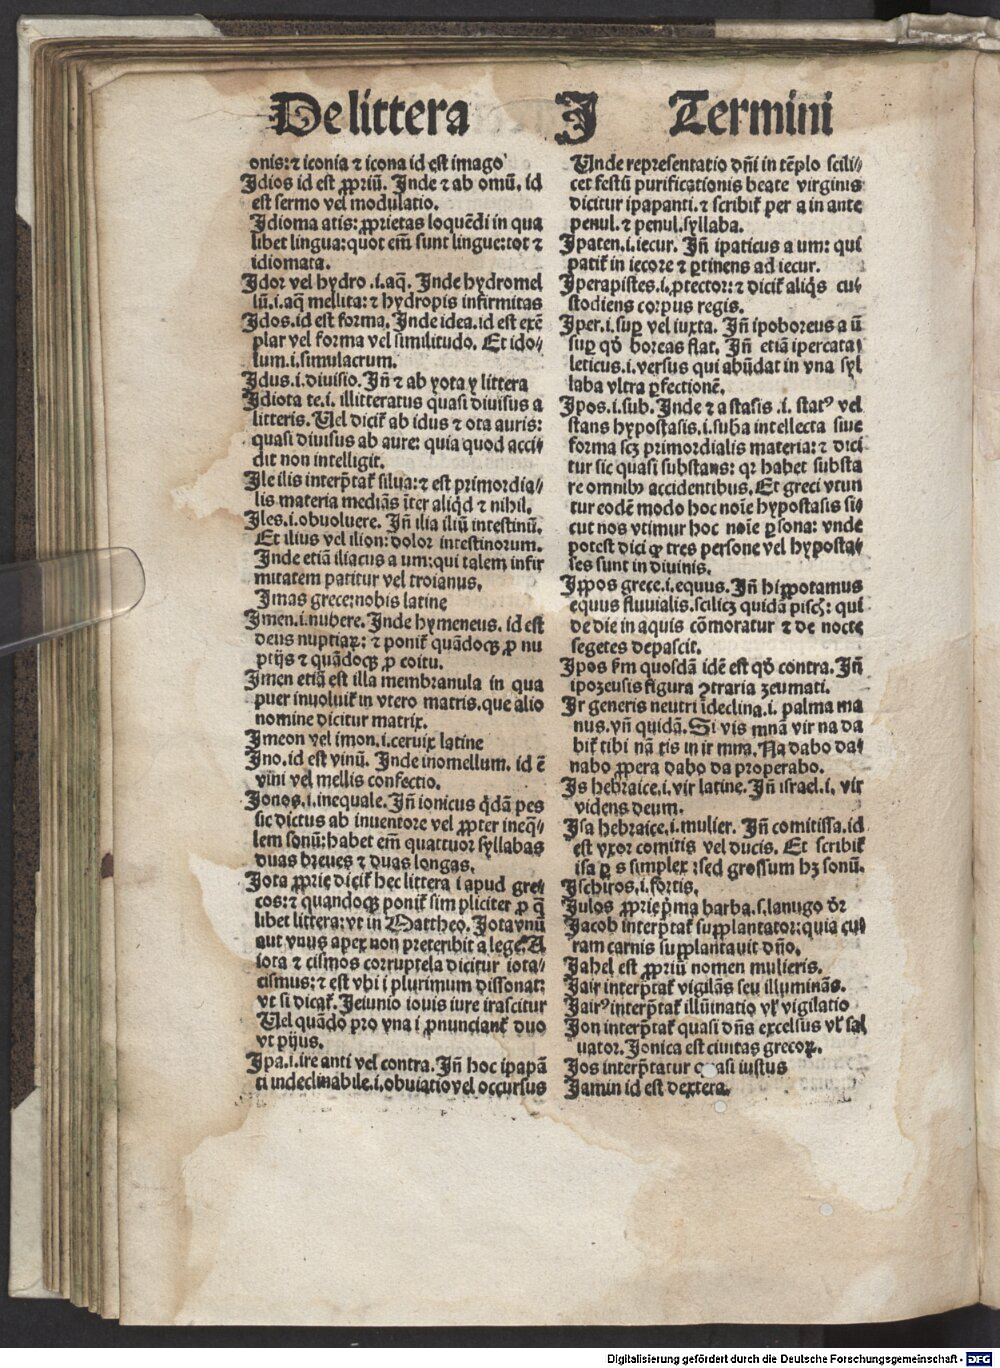 De littera J Termini
onis: ⁊ iconia ⁊ icona id est imago
Jdios id est ꝓpriū. Jnde ⁊ ab omū. id
est sermo vel modulatio.
Jdioma atis: ꝓprietas loquēdi in qua
libet lingua: quot em̄ sunt lingue: tot ⁊
idiomata.
Jdor vel hydro .i. aq̄. Jnde hydromel
lū. i. aq̄ mellita: ⁊ hydropis infirmitas
Jdos. id est forma. Jnde idea. id est exē
plar vel forma vel similitudo. Et ido⸗
lum. i. simulacrum.
Jdus. i. diuisio. Jn̄ ⁊ ab yota y littera
Jdiota te. i. illitteratus quasi diuisus a
litteris. Uel dicit̄ ab idus ⁊ ota auris:
quasi diuisus ab aure: quia quod acci⸗
dit non intelligit.
Jle ilis interp̄tat̄ silua: ⁊ est primordia⸗
lis materia mediās īter aliqd̄ ⁊ nihil.
Jles. i. obuoluere. Jn̄ ilia iliū intestinū.
Et ilius vel ilion: dolor intestinorum.
Jnde etiā iliacus a um: qui talem infir
mitatem patitur vel troianus.
Jmas grece: nobis latine
Jmen. i. nubere. Jnde hymeneus. id est
deus nuptiaꝝ: ⁊ ponit̄ quādoqꝫ ꝓ nu
ptijs ⁊ quādoqꝫ ꝓ coitu.
Jmen etiā est illa membranula in qua
puer inuoluit̄ in vtero matris. que alio
nomine dicitur matrix.
Jmeon vel imon. i. ceruix latine
Jno. id est vinū. Jnde inomellum. id ē
vini vel mellis confectio.
Jonos. i. inequale. Jn̄ ionicus q̇dā pes
sic dictus ab inuentore vel ꝓpter ineq̄⸗
lem sonū: habet em̄ quattuor syllabas
duas breues ⁊ duas longas.
Jota ꝓprie dicit̄ hec littera i apud gre⸗
cos: ⁊ quandoqꝫ ponit̄ sim pliciter ꝓ q̄
libet littera: vt in Mattheo. Jota vnū
aut vnus apex non preteribit a lege. A
iota ⁊ cismos corruptela dicitur iota⸗
cismus: ⁊ est vbi i plurimum dissonat:
vt si dicat̄. Jeiunio iouis iure irascitur
Uel quādo pro vna i ꝓnunciant̄ duo
vt pijus.
Jpa. i. ire anti vel contra. Jn̄ hoc ipapā
ti indeclinabile. i. obuiatio vel occursus
Unde representatio dn̄i in tēplo scili⸗
cet festū purificationis beate virginis
dicitur ipapanti. ⁊ scribit̄ per a in ante
penul. ⁊ penul. syllaba.
Jpaten. i. iecur. Jn̄ ipaticus a um: qui
patit̄ in iecore ⁊ ꝑtinens ad iecur.
Jperapistes. i. ꝓtector: ⁊ dicit̄ aliq̇s cu⸗
stodiens corpus regis.
Jper. i. suꝑ vel iuxta. Jn̄ ipoboreus a ū
suꝑ qd̓ boreas flat. Jn̄ etiā ipercata⸗
leticus. i. versus qui abūdat in vna syl
laba vltra ꝑfectionē.
Jpos. i. sub. Jnde ⁊ a stasis .i. statꝰ vel
stans hypostasis. i. suba intellecta siue
forma scꝫ primordialis materia: ⁊ dici
tur sic quasi substans: qꝛ habet substa
re omnibꝫ accidentibus. Et greci vtun
tur eodē modo hoc noīe hypostasis si⸗
cut nos vtimur hoc noīe ꝑsona: vnde
potest dici ꝙ tres persone vel hyposta⸗
ses sunt in diuinis.
Jppos grece. i. equus. Jn̄ hippotamus
equus fluuialis. scilicꝫ quidā pisc̄: qui
de die in aquis cōmoratur ⁊ de nocte
segetes depascit.
Jpos ẜm quosdā idē est qd̓ contra. Jn̄
ipozeusis figura ꝯtraria zeumati.
Jr generis neutri īdeclina. i. palma ma
nus. vn̄ quidā. Si vis mnā vir na da
bit̄ tibi nā ris in ir mna. Na dabo da⸗
nabo ꝓpera dabo da properabo.
Js hebraice. i. vir latine. Jn̄ israel. i. vir
videns deum.
Jsa hebraice. i. mulier. Jn̄ comitissa. id
est vxor comitis vel ducis. Et scribit̄
isa ꝑ s simplex: sed grossum hꝫ sonū.
Jschiros. i. fortis.
Julos ꝓprie p̄ma barba. s. lanugo dr̄
Jacob interp̄tat̄ supplantator: quia cu⸗
ram carnis supplantauit dn̄o.
Jahel est ꝓpriū nomen mulieris.
Jair interp̄tat̄ vigilās seu illuminās.
Jairꝰ interp̄tat̄ illūinatio vl̓ vigilatio
Jon interp̄tat̄ quasi dn̄s excelsus vl̓ sal
uator. Jonica est ciuitas grecoꝝ.
Jos interp̄tatur quasi iustus
Jamin id est dextera.
Digitalisierung gefördert durch die Deutsche Forschungsgemeinschaft - DFG